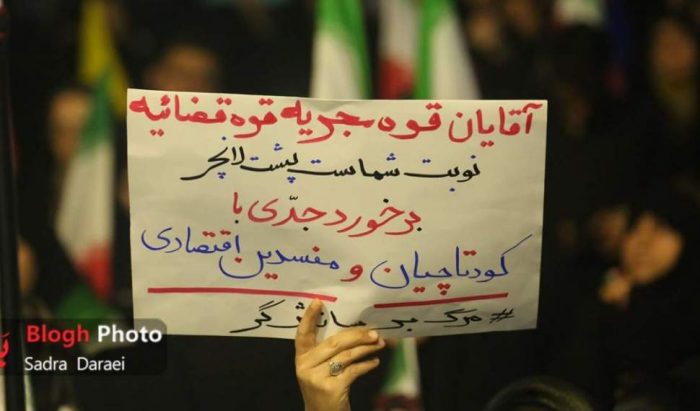 آقایان قوه مجریه قوه قضائیه
نوبت شماست پشت لانچر
برخورد جدّی با
کودتاچیان و مفسدین اقتصادی
#مرگ بر سازشگر
Blogh Photo
Sadra Daraei